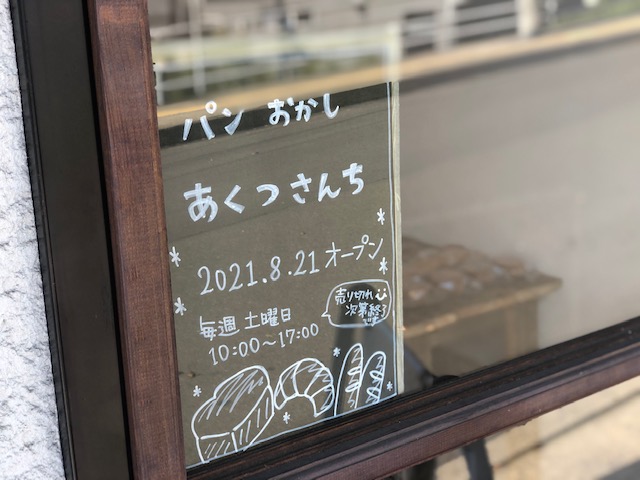 パン おかし
あくつさんち
2021.8.21 オープン
毎週 土曜日
10:00〜17:00
売り切れ
次第終了